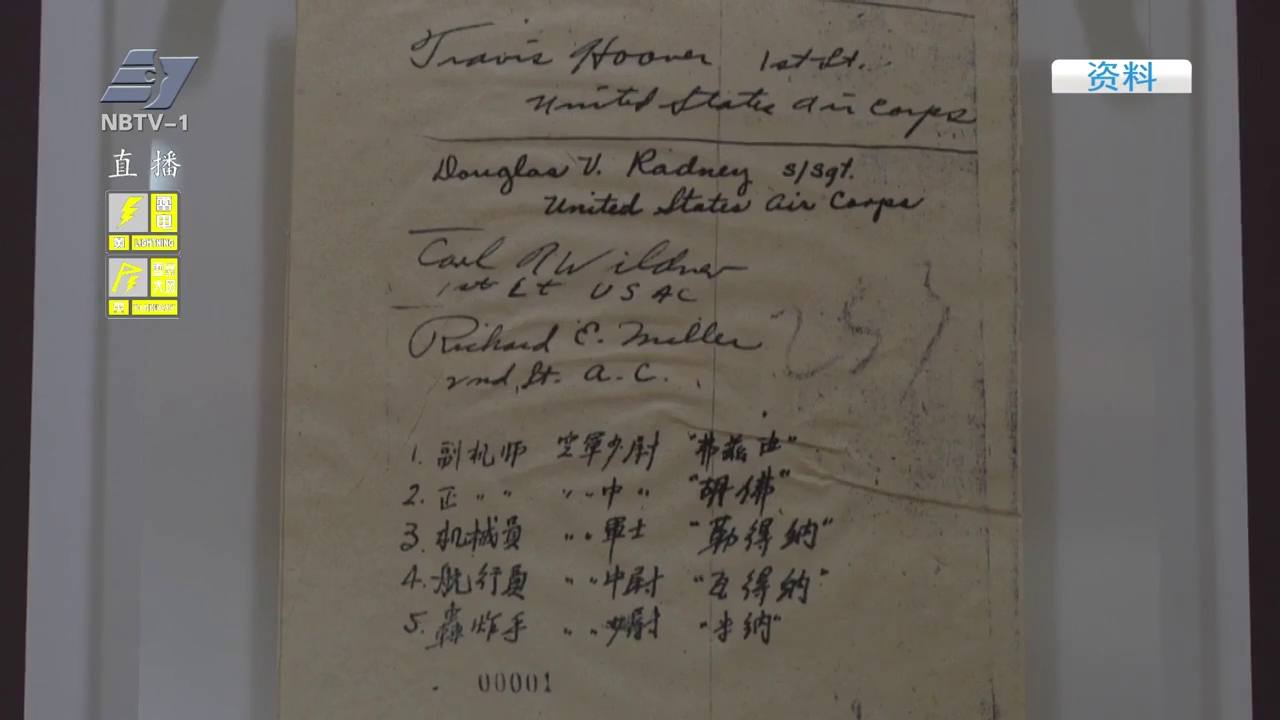 NBTV-1
直播
资料
LIGHTNING
Travis Hoover 1st Lt.
United States Air Corps
Douglas V. Radney S/Sgt.
United States Air Corps
Carl R Wildner
1st Lt U S A C
Richard E. Miller
2nd, Lt. A. C.
1. 副机师 空軍少尉 "弗兹由"
2. 正 〃 〃 〃 〃 中 〃 "胡佛"
3. 机械員 〃 〃 軍士 "勒得納"
4. 航行員 〃 〃 中尉 "瓦得納"
5. 轟炸手 〃 〃 少尉 "米納"
00001